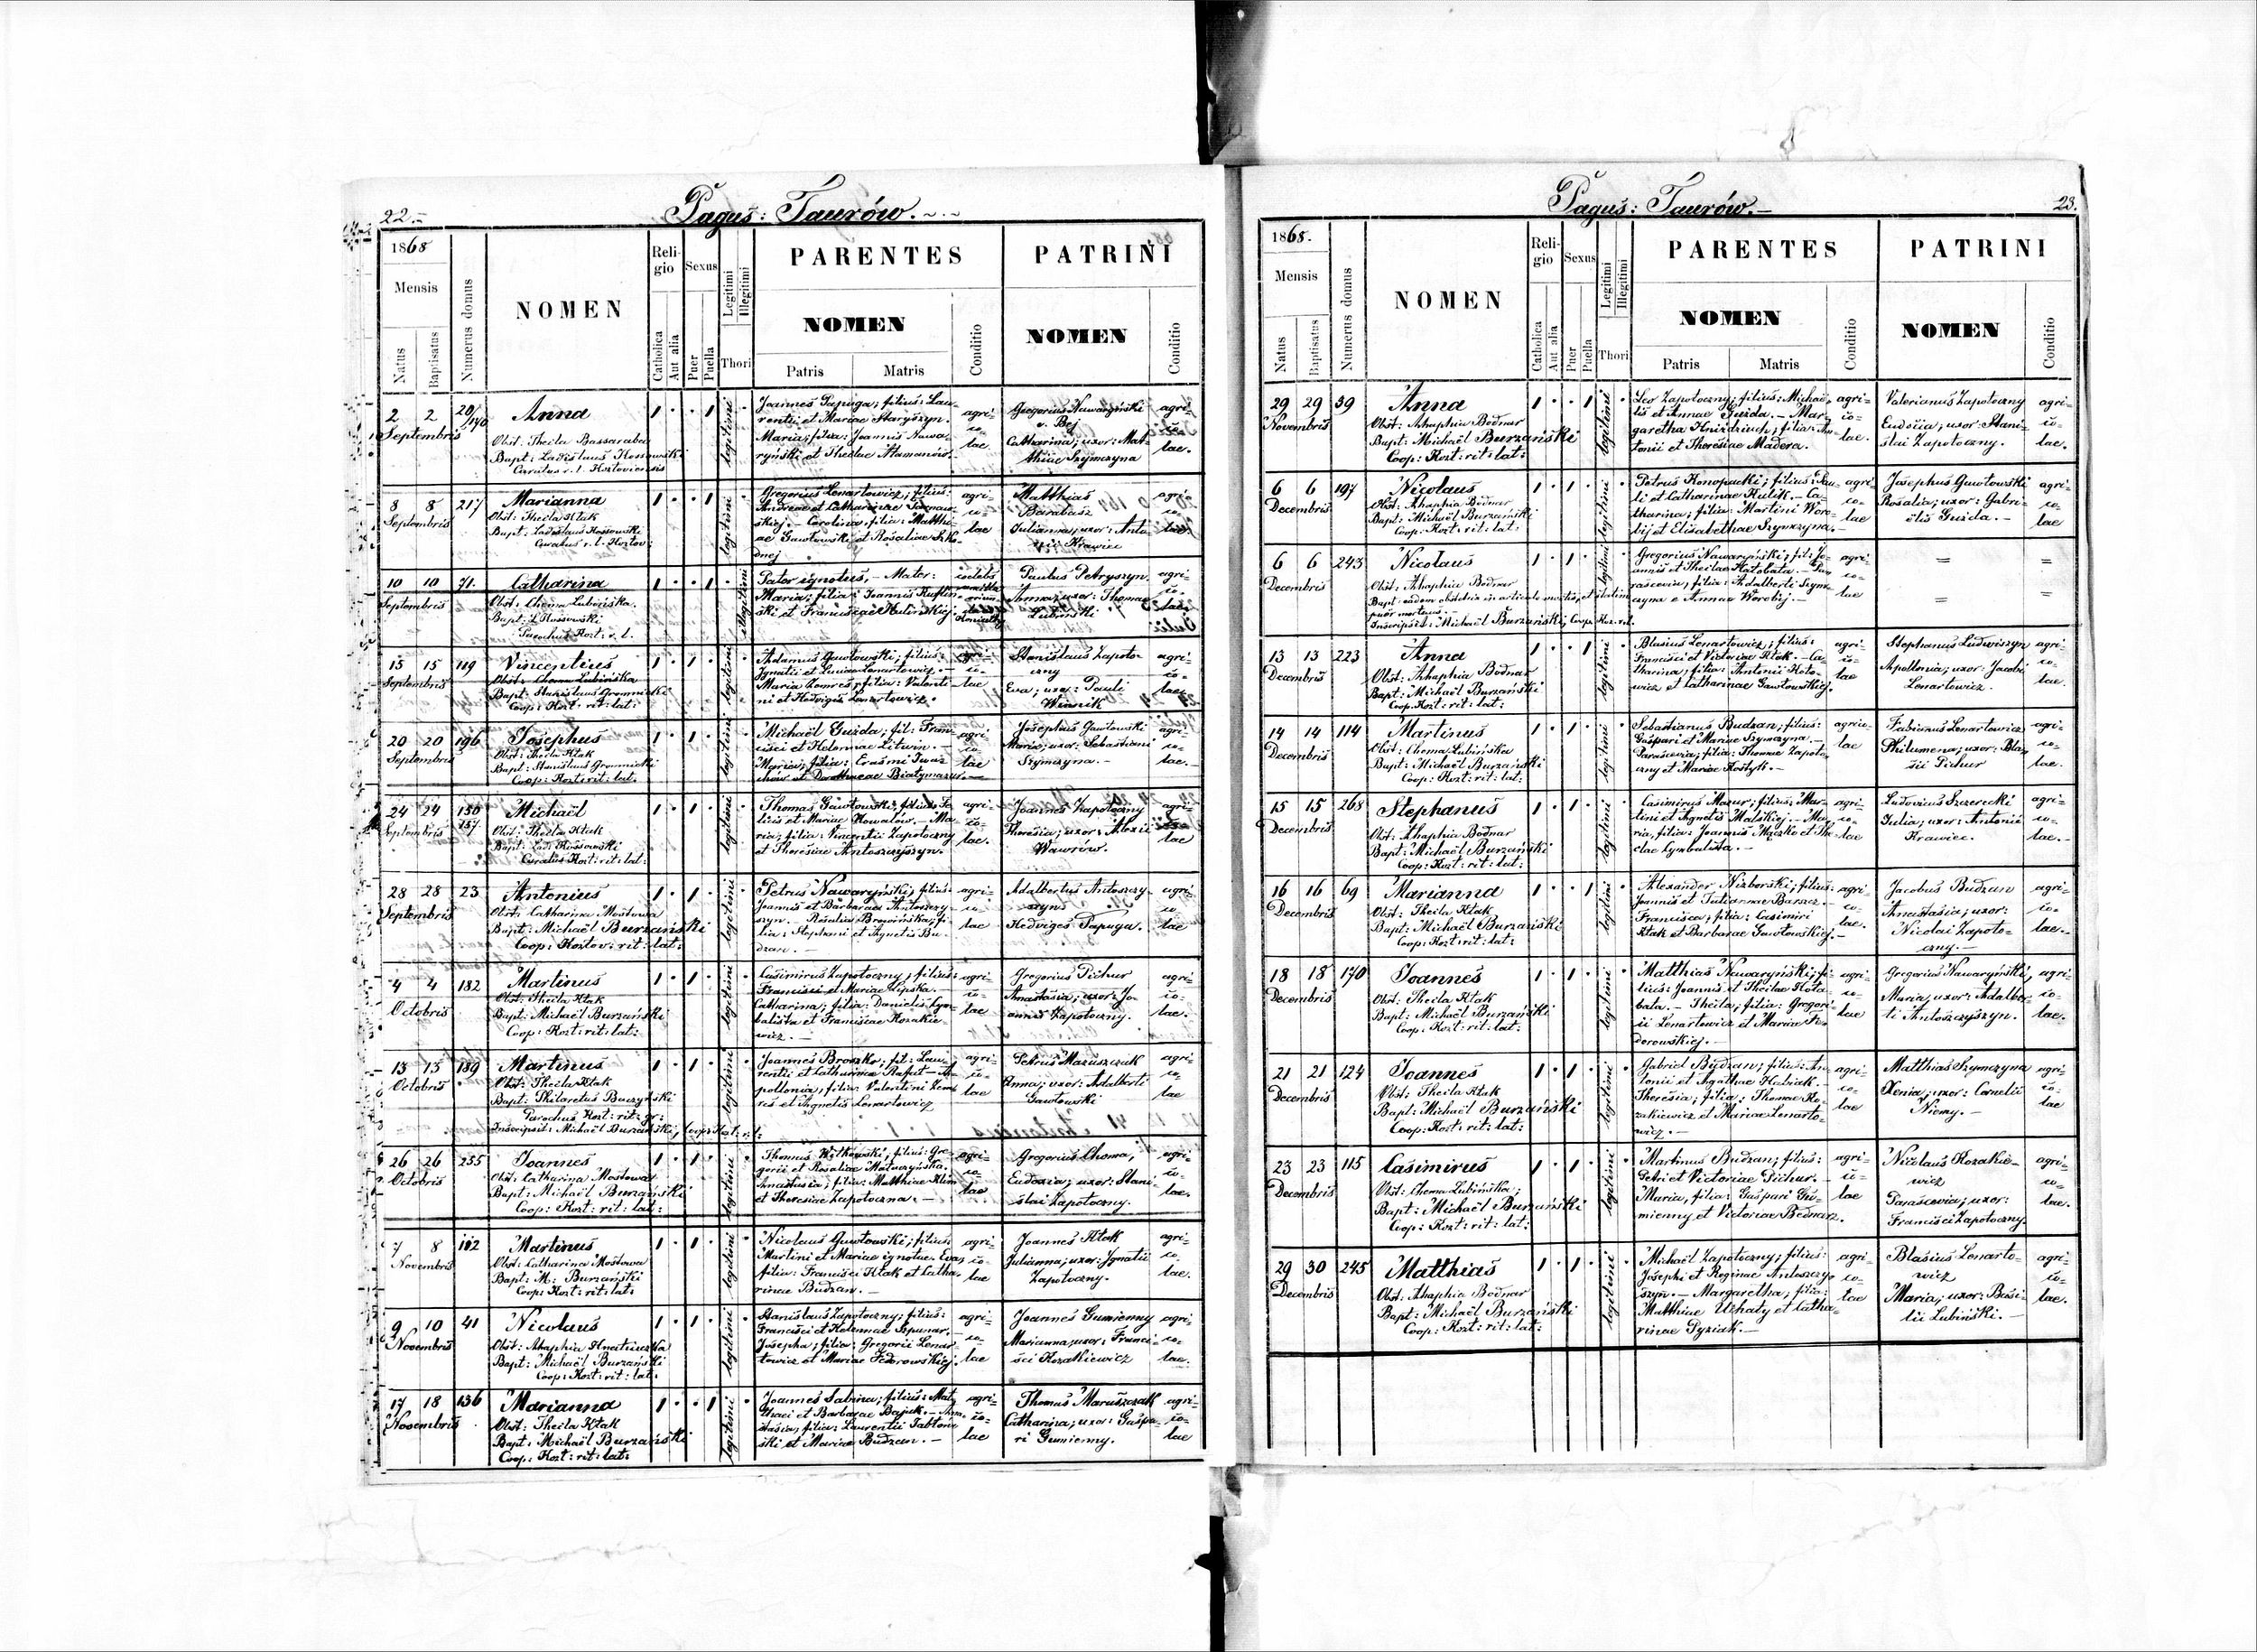 22.
Pagus: Taurów.
1868
Mensis
Natus
Baptisatus
Numerus domus
NOMEN
Religio
Catholica
Aut alia
Sexus
Puer
Puella
Legitimi
Illegitimi
Thori
PARENTES
NOMEN
Patris
Matris
Conditio
PATRINI
NOMEN
Conditio
2 2 Septembris
Anna
Obst: Thecla Bassaraba
Bapt: Ladislaus Kossowski
Curatus r. l. Koztoviensis
1 . . 1 legitimi .
Joannes Papuga; filius: Lau-
rentii et Mariae Staryszyn.
Maria; filia: Joannis Nawa-
ryński et Theclae Atamanow.
agri-
co-
lae
Gregorius Nawaryński
v. Bej
Catharina; uxor: Mat-
thiae Szymczyna
agri-
co-
lae.
8 8 217 Septembris
Marianna
Obst: Thecla Kłak
Bapt: Ladislaus Kossowski
Curatus r. l. Koztov:
1 . . 1 legitimi .
Gregorius Lenartowicz; filius:
Andreae et Catharinae Tarnaw-
skiej. Carolina, filia: Matthi-
ae Gawłowski et Rosaliae Szko-
dnej
agri-
co-
lae
Matthias
Barabasz
Julianna; uxor: Anto-
nii Krawiec
agri-
co-
lae.
10 10 71. Septembris
Catharina
Obst: Choma Lubińska.
Bapt: L Kossowski
Parochus Kozt: r. l.
1 . . 1 . illegitimi
Pater ignotus, - Mater:
Maria; filia: Joannis
ski et Franciscae
Paulus Petryszyn
Anna; uxor: Thomae
Lubiński
agri-
co-
lae.
15 15 119 Septembris
Vincentius
Obst: Choma Lubińska
Bapt: Stanislaus Gromnicki
Coop: Kozt: rit: lat:
1 . 1 . legitimi .
Adamus Gawłowski; filius:
Ignatii et Luciae Lenartowicz.
Maria Zomreś; filia: Valenti-
ni et Hedvigis Lenartowicz.
agri-
co-
lae
Stanislaus Zapoto-
czny
Eva; uxor: Pauli
Winnik
agri-
co-
lae.
20 20 196 Septembris
Josephus
Obst: Thecla Kłak
Bapt: Stanislaus Gromnicki
Coop: Kozt: rit: lat:
1 . 1 . legitimi .
Michaël Guzda; fil: Fran-
cisci et Helennae Litwin. -
Maria; filia: Erasmi Iwas-
chów et Dorotheae Białymazur.
agri-
co-
lae
Josephus Gawłowski
Maria; uxor: Sebastiani
Szymczyna. -
agri-
co-
lae.
24 24 150 157. Septembris
Michaël
Obst: Thecla Kłak
Bapt: Lad: Kossowski
Curatus Kozt: rit: lat:
1 . 1 . legitimi .
Thomas Gawłowski; filius: Fe-
licis et Mariae Kowalów. - Ma-
ria; filia: Vincentii Zapotoczny
et Theresiae Antoszczyszyn.
agri-
co-
lae.
Joannes Zapotoczny
Theresia; uxor: Alexii
Wawrów.
agri-
co-
lae
28 28 23 Septembris
Antonius
Obst: Catharina Mostowa
Bapt: Michaël Burzański
Coop: Koztov: rit: lat:
1 . 1 . legitimi .
Petrus Nawaryński; filius:
Joannis et Barbarae Antoszczy-
szyn. Rosalia Brozińska; fi-
lia: Stephani et Agnetis Bu-
dzan. -
agri-
co-
lae
Adalbertus Antoszczy-
szyn
Hedviges Papuga.
agri-
co-
lae
4 4 182 Octobris
Martinus
Obst: Thecla Kłak
Bapt: Michaël Burzański
Coop: Kozt: rit: lat:
1 . 1 . legitimi .
Casimirus Zapotoczny; filius:
Francisci et Mariae Lipska.
Catharina; filia: Danielis Cym-
balista et Franciscae Kozakie-
wicz. -
agri-
co-
lae
Gregorius Pichur
Anastasia; uxor: Jo-
annis Zapotoczny.
agri-
co-
lae.
13 13 189 Octobris
Martinus
Obst: Thecla Kłak
Bapt: Philaretus Baczyński
Parochus Kozt: rit: gr:
Inscripsit: Michaël Burzański, Coop: Kozt: r. l:
1 . 1 . legitimi .
Joannes Broszko; fil: Lau-
rentii et Catharinae Rafat - A-
pollonia; filia: Valentini Zom-
reś et Agnetis Lenartowicz
agri-
co-
lae
Petrus Maruszczak
Anna; uxor: Adalberti
Gawłowski
agri-
co-
lae
26 26 255 Octobris
Joannes
Obst: Catharina Mostowa
Bapt: Michaël Burzański
Coop: Kozt: rit: lat:
1 . 1 . legitimi .
Thomas Witkowski; filius: Gre-
gorii et Rosaliae Matuszyńska.
Anastasia; filia: Matthiae Klim
et Theresiae Zapotoczna. -
agri-
co-
lae
Gregorius Choma;
Eudoxia; uxor: Stani-
slai Zapotoczny.
agri-
co-
lae.
7 8 112 Novembris
Martinus
Obst: Catharina Mostowa
Bapt: M: Burzański
Coop: Kozt: rit: lat:
1 . 1 . legitimi .
Nicolaus Gawłowski; filius:
Martini et Mariae ignotae. Eva;
filia: Francisci Kłak et Catha-
rinae Budzan. -
agri-
co-
lae
Joannes Kłak
Julianna; uxor: Ignatii
Zapotoczny.
agri-
co-
lae.
9 10 41 Novembris
Nicolaus
Obst: Ahaphia Hnatiuczka
Bapt: Michaël Burzański
Coop: Kozt: rit: lat:
1 . 1 . legitimi .
Stanislaus Zapotoczny; filius:
Francisci et Helennae Szpunar.
Josepha; filia: Gregorii Lenar-
towicz et Mariae Fedorowskiej.
agri-
co-
lae
Joannes Gumienny
Marianna; uxor: Franci-
sci Kozakiewicz
agri-
co-
lae.
17 18 136 Novembris
Marianna
Obst: Thecla Kłak
Bapt: Michaël Burzański
Coop: Kozt: rit: lat:
1 . . 1 legitimi .
Joannes Sabina; filius: Mat-
thaei et Barbarae Bajuk. - Ana-
stasia; filia: Laurentii Jabłoń-
ski et Mariae Budzan. -
agri-
co-
lae
Thomas Maruszczak
Catharina; uxor: Gaspa-
ri Gumienny.
agri-
co-
lae
Pagus: Taurów.
23.
1868.
Mensis
Natus
Baptisatus
Numerus domus
NOMEN
Religio
Catholica
Aut alia
Sexus
Puer
Puella
Legitimi
Illegitimi
Thori
PARENTES
NOMEN
Patris
Matris
Conditio
PATRINI
NOMEN
Conditio
29 29 39 Novembris
Anna
Obst: Ahaphia Bodnar
Bapt: Michaël Burzański
Coop: Kozt: rit: lat:
1 . . 1 legitimi .
Leo Zapotoczny; filius: Michaë-
lis et Annae Guzda. - Mar-
garetha Hnizdiuch; filia: An-
tonii et Theresiae Madera.
agri-
co-
lae.
Valerianus Zapotoczny
Eudocia; uxor: Stani-
slai Zapotoczny.
agri-
co-
lae.
6 6 197 Decembris
Nicolaus
Obst: Ahaphia Bodnar
Bapt: Michaël Burzański
Coop: Kozt: rit: lat:
1 . 1 . legitimi .
Petrus Konopacki; filius: Pau-
li et Catharinae Kulik. - Ca-
tharina; filia: Martini Woro-
bij et Elisabethae Szymczyna.
agri-
co-
lae
Josephus Gawłowski
Rosalia; uxor: Gabri-
ëlis Guzda. -
agri-
co-
lae
6 6 243 Decembris
Nicolaus
Obst: Ahaphia Bodnar
Bapt: eadem obstetrix in articulo mortis, et statim
puer mortuus. -
Inscripsit: Michaël Burzański, Coop: Koz: rit.
1 . 1 . legitimi .
Gregorius Nawaryński; fil: Jo-
annis et Theclae Hatabata. - Pa-
rascevia; filia: Adalberti Szym-
czyna et Annae Worobij. -
agri-
co-
lae
= =
= =
13 13 223 Decembris
Anna
Obst: Ahaphia Bodnar
Bapt: Michaël Burzański
Coop: Kozt: rit: lat:
1 . . 1 legitimi .
Blasius Lenartowicz; filius:
Francisci et Victoriae Kłak. - Ca-
tharina; filia: Antonii Koto-
wicz et Catharinae Gawłowskiej.
agri-
co-
lae
Stephanus Ludwiszyn
Apollonia; uxor: Jacobi
Lenartowicz.
agri-
co-
lae.
14 14 114 Decembris
Martinus
Obst: Choma Lubińska
Bapt: Michaël Burzański
Coop: Kozt: rit: lat:
1 . 1 . legitimi .
Sebastianus Budzan; filius:
Gaspari et Mariae Szymczyna. -
Parascevia; filia: Thomae Zapoto-
czny et Mariae Kostyk. -
agrico-
lae
Fabianus Lenartowicz
Philumena; uxor: Bla-
sii Pichur
agri-
co-
lae.
15 15 268 Decembris
Stephanus
Obst: Ahaphia Bodnar
Bapt: Michaël Burzański
Coop: Kozt: rit: lat:
1 . 1 . legitimi .
Casimirus Mazur; filius: Mar-
tini et Agnetis Malskiej. - Ma-
ria; filia: Joannis Maczko et The-
clae Cymbalista. -
agri-
co-
lae
Ludovicus Szczerecki
Julia; uxor: Antonii
Krawiec.
agri-
co-
lae.
16 16 69 Decembris
Marianna
Obst: Thecla Kłak
Bapt: Michaël Burzański
Coop: Kozt: rit: lat:
1 . . 1 legitimi .
Alexander Nizborski; filius:
Joannis et Juliannae Barszcz. -
Francisca; filia: Casimiri
Kłak et Barbarae Gawłowskiej. -
agri-
co-
lae.
Jacobus Budzan
Anastasia; uxor:
Nicolai Zapoto-
czny. -
agri-
co-
lae.
18 18 170 Decembris
Joannes
Obst: Thecla Kłak
Bapt: Michaël Burzański
Coop: Kozt: rit: lat:
1 . 1 . legitimi .
Matthias Nawaryński; fi-
lius: Joannis et Theclae Hata-
bata. - Thecla; filia: Gregor-
ii Lenartowicz et Mariae Fe-
dorowskiej. -
agri-
co-
lae
Gregorius Nawaryński;
Maria; uxor: Adalber-
ti Antoszczyszyn.
agri-
co-
lae.
21 21 124 Decembris
Joannes
Obst: Thecla Kłak
Bapt: Michaël Burzański
Coop: Kozt: rit: lat:
1 . 1 . legitimi .
Gabriel Budzan; filius: An-
tonii et Agathae Hubiak. -
Theresia; filia: Thomae Ko-
zakiewicz et Mariae Lenarto-
wicz. -
agri-
co-
lae
Matthias Szymczyna
Xenia; uxor: Cornelii
Niemy. -
agri-
co-
lae
23 23 115 Decembris
Casimirus
Obst: Choma Lubińska;
Bapt: Michaël Burzański
Coop: Kozt: rit: lat:
1 . 1 . legitimi .
Martinus Budzan; filius:
Petri et Victoriae Pichur. -
Maria; filia: Gaspari Gu-
mienny et Victoriae Bednarz.
agri-
co-
lae
Nicolaus Kozakie-
wicz
Parascevia; uxor:
Francisci Zapotoczny.
agri-
co-
lae.
29 30 245 Decembris
Matthias
Obst: Ahaphia Bodnar
Bapt: Michaël Burzański
Coop: Kozt: rit: lat:
1 . 1 . legitimi .
Michaël Zapotoczny; filius:
Josephi et Reginae Antoszczy-
szyn. - Margaretha; filia:
Matthiae Uchaty et Catha-
rinae Pyziak. -
agri-
co-
lae
Blasius Lenarto-
wicz
Maria; uxor: Basi-
lii Lubiński. -
agri-
co-
lae.